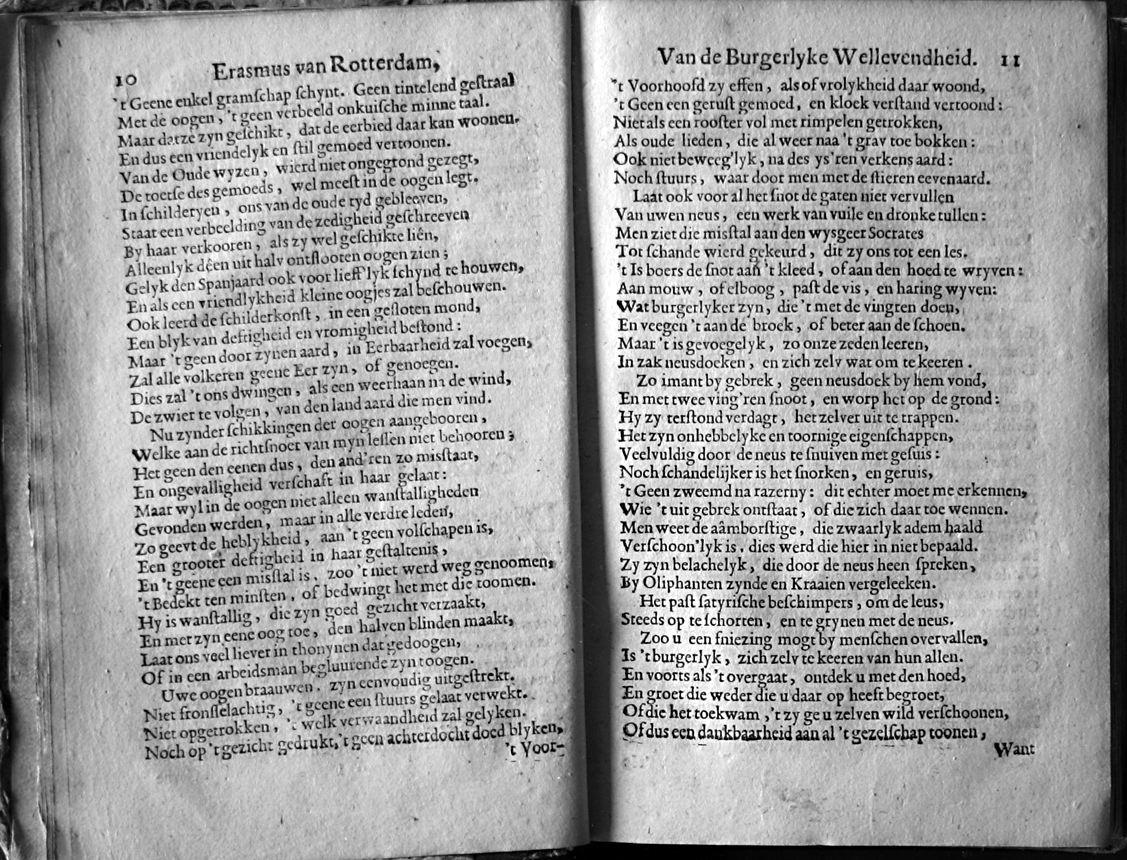 10 Erasmus van Rotterdam,
't Geene enkel gramſchap ſchynt. Geen tintelend geſtraal
Met de oogen, 't geen verbeeld onkuiſche minne taal.
Maar datze zyn geſchikt, dat de eerbied daar kan woonen.
En dus een vriendelyk en ſtil gemoed vertoonen.
Van de Oude wyzen, wierd niet ongegrond gezegt,
De toetſe des gemoeds, wel meeſt in de oogen legt.
In ſchilderyen, ons van de oude tyd gebleeven,
Staat een verbeelding van de zedigheid geſchreeven
By haar verkooren, als zy wel geſchikte liên,
Alleenlyk dêen uit halv ontſlooten oogen zien;
Gelyk den Spanjaard ook voor lieff'lyk ſchynd te houwen,
En als een vriendlykheid kleine oogjes zal beſchouwen.
Ook leerd de ſchilderkonſt, in een geſloten mond,
Een blyk van deftigheid en vromigheid beſtond:
Maar 't geen door zynen aard, in Eerbaarheid zal voegen,
Zal alle volkeren geene Eer zyn, of genoegen.
Dies zal 't ons dwingen, als een weerhaan na de wind,
De zwier te volgen, van den land aard die men vind.
Nu zynder ſchikkingen der oogen aangebooren,
Welke aan de richtſnoer van myn leſſen niet behooren;
Het geen den eenen dus, den and'ren zo misſtaat,
En ongevalligheid verſchaft in haar gelaat:
Maar wyl in de oogen niet alleen wanſtalligheden
Gevonden werden, maar in alle verdre leden,
Zo geevt de heblykheid, aan 't geen volſchapen is,
Een grooter deftigheid in haar geſtaltenis,
En 't geene een misſtal is, zoo 't niet werd weg genoomen,
't Bedekt ten minſten, of bedwingt het met die toomen.
Hy is wanſtallig, die zyn goed gezicht verzaakt,
En met zyn eene oog toe, den halven blinden maakt,
Laat ons veel liever in thonynen dat gedoogen,
Of in een arbeidsman begluurende zyn toogen.
Uwe oogen braauwen, zyn eenvoudig uitgeſtrekt.
Niet fronſſelachtig, 't geene een ſtuurs gelaat verwekt.
Niet opgetrokken, 't welk verwaandheid zal gelyken.
Noch op 't gezicht gedrukt, 't geen achterdocht doed blyken,
't Voor-
Van de Burgerlyke Wellevendheid. 11
't Voorhoofd zy effen, als of vrolykheid daar woond,
't Geen een geruſt gemoed, en kloek verſtand vertoond:
Niet als een rooſter vol met rimpelen getrokken,
Als oude lieden, die al weer naa 't grav toe bokken:
Ook niet beweeg'lyk, na des ys'ren verkens aard:
Noch ſtuurs, waar door men met de ſtieren eevenaard.
Laat ook voor al het ſnot de gaten niet vervullen
Van uwen neus, een werk van vuile en dronke tullen:
Men ziet die misſtal aan den wysgeer Socrates
Tot ſchande wierd gekeurd, dit zy ons tot een les.
't Is boers de ſnot aan 't kleed, of aan den hoed te wryven:
Aan mouw, of elboog, paſt de vis, en haring wyven:
Wat burgerlyker zyn, die 't met de vingren doen,
En veegen 't aan de broek, of beter aan de ſchoen.
Maar 't is gevoegelyk, zo onze zeden leeren,
In zak neusdoeken, en zich zelv wat om te keeren.
Zo imant by gebrek, geen neusdoek by hem vond,
En met twee ving'ren ſnoot, en worp het op de grond:
Hy zy terſtond verdagt, het zelver uit te trappen.
Het zyn onhebbelyke en toornige eigenſchappen,
Veelvuldig door de neus te ſnuiven met geſuis:
Noch ſchandelijker is het ſnorken, en geruis,
't Geen zweemd na razerny: dit echter moet me erkennen,
Wie 't uit gebrek ontſtaat, of die zich daar toe wennen.
Men weet de aâmborſtige, die zwaarlyk adem haald
Verſchoon'lyk is, dies werd die hier in niet bepaald.
Zy zyn belachelyk, die door de neus heen ſpreken,
By Oliphanten zynde en Kraaien vergeleeken.
Het paſt ſatyriſche beſchimpers, om de leus,
Steeds op te ſchorten, en te grynen met de neus.
Zoo u een ſniezing mogt by menſchen overvallen,
Is 't burgerlyk, zich zelv te keeren van hun allen.
En voorts als 't overgaat, ontdek u met den hoed,
En groet die weder die u daar op heeft begroet,
Of die het toekwam, 't zy ge u zelven wild verſchoonen,
Of dus een dankbaarheid aan al 't gezelſchap toonen,
Want